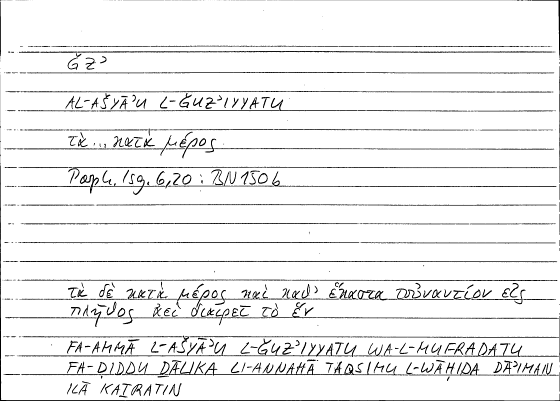 ǦZʾ
AL-AŠYĀʾU L-ǦUZʾIYYATU
τὰ... κατὰ μέρος
Porph. Isg. 6,20 : BN 150b
τὰ δὲ κατὰ μέρος καὶ καθ' ἕκαστα τοὐναντίον εἰς
πλῆθος ἀεὶ διαιρεῖ τὸ ἕν
FA-AMMĀ L-AŠYĀʾU L-ǦUZʾIYYATU WA-L-MUFRADATU
FA-ḌIDDU ḎĀLIKA LI-ANNAHĀ TAQSIMU L-WĀḤIDA DĀʾIMAN
ILĀ KAṮĪRATIN